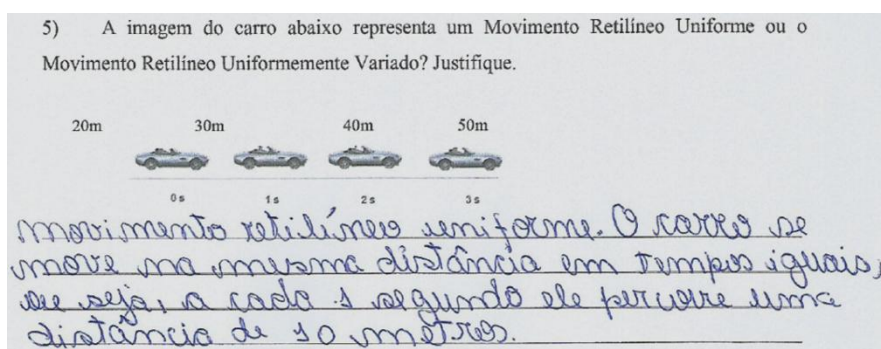 5) A imagem do carro abaixo representa um Movimento Retilíneo Uniforme ou o
Movimento Retilíneo Uniformemente Variado? Justifique.
20m 30m 40m 50m
0s 1s 2s 3s
movimento retilíneo uniforme. O carro se
move na mesma distância em tempos iguais,
ou seja, a cada 1 segundo ele percorre uma
distância de 10 metros.